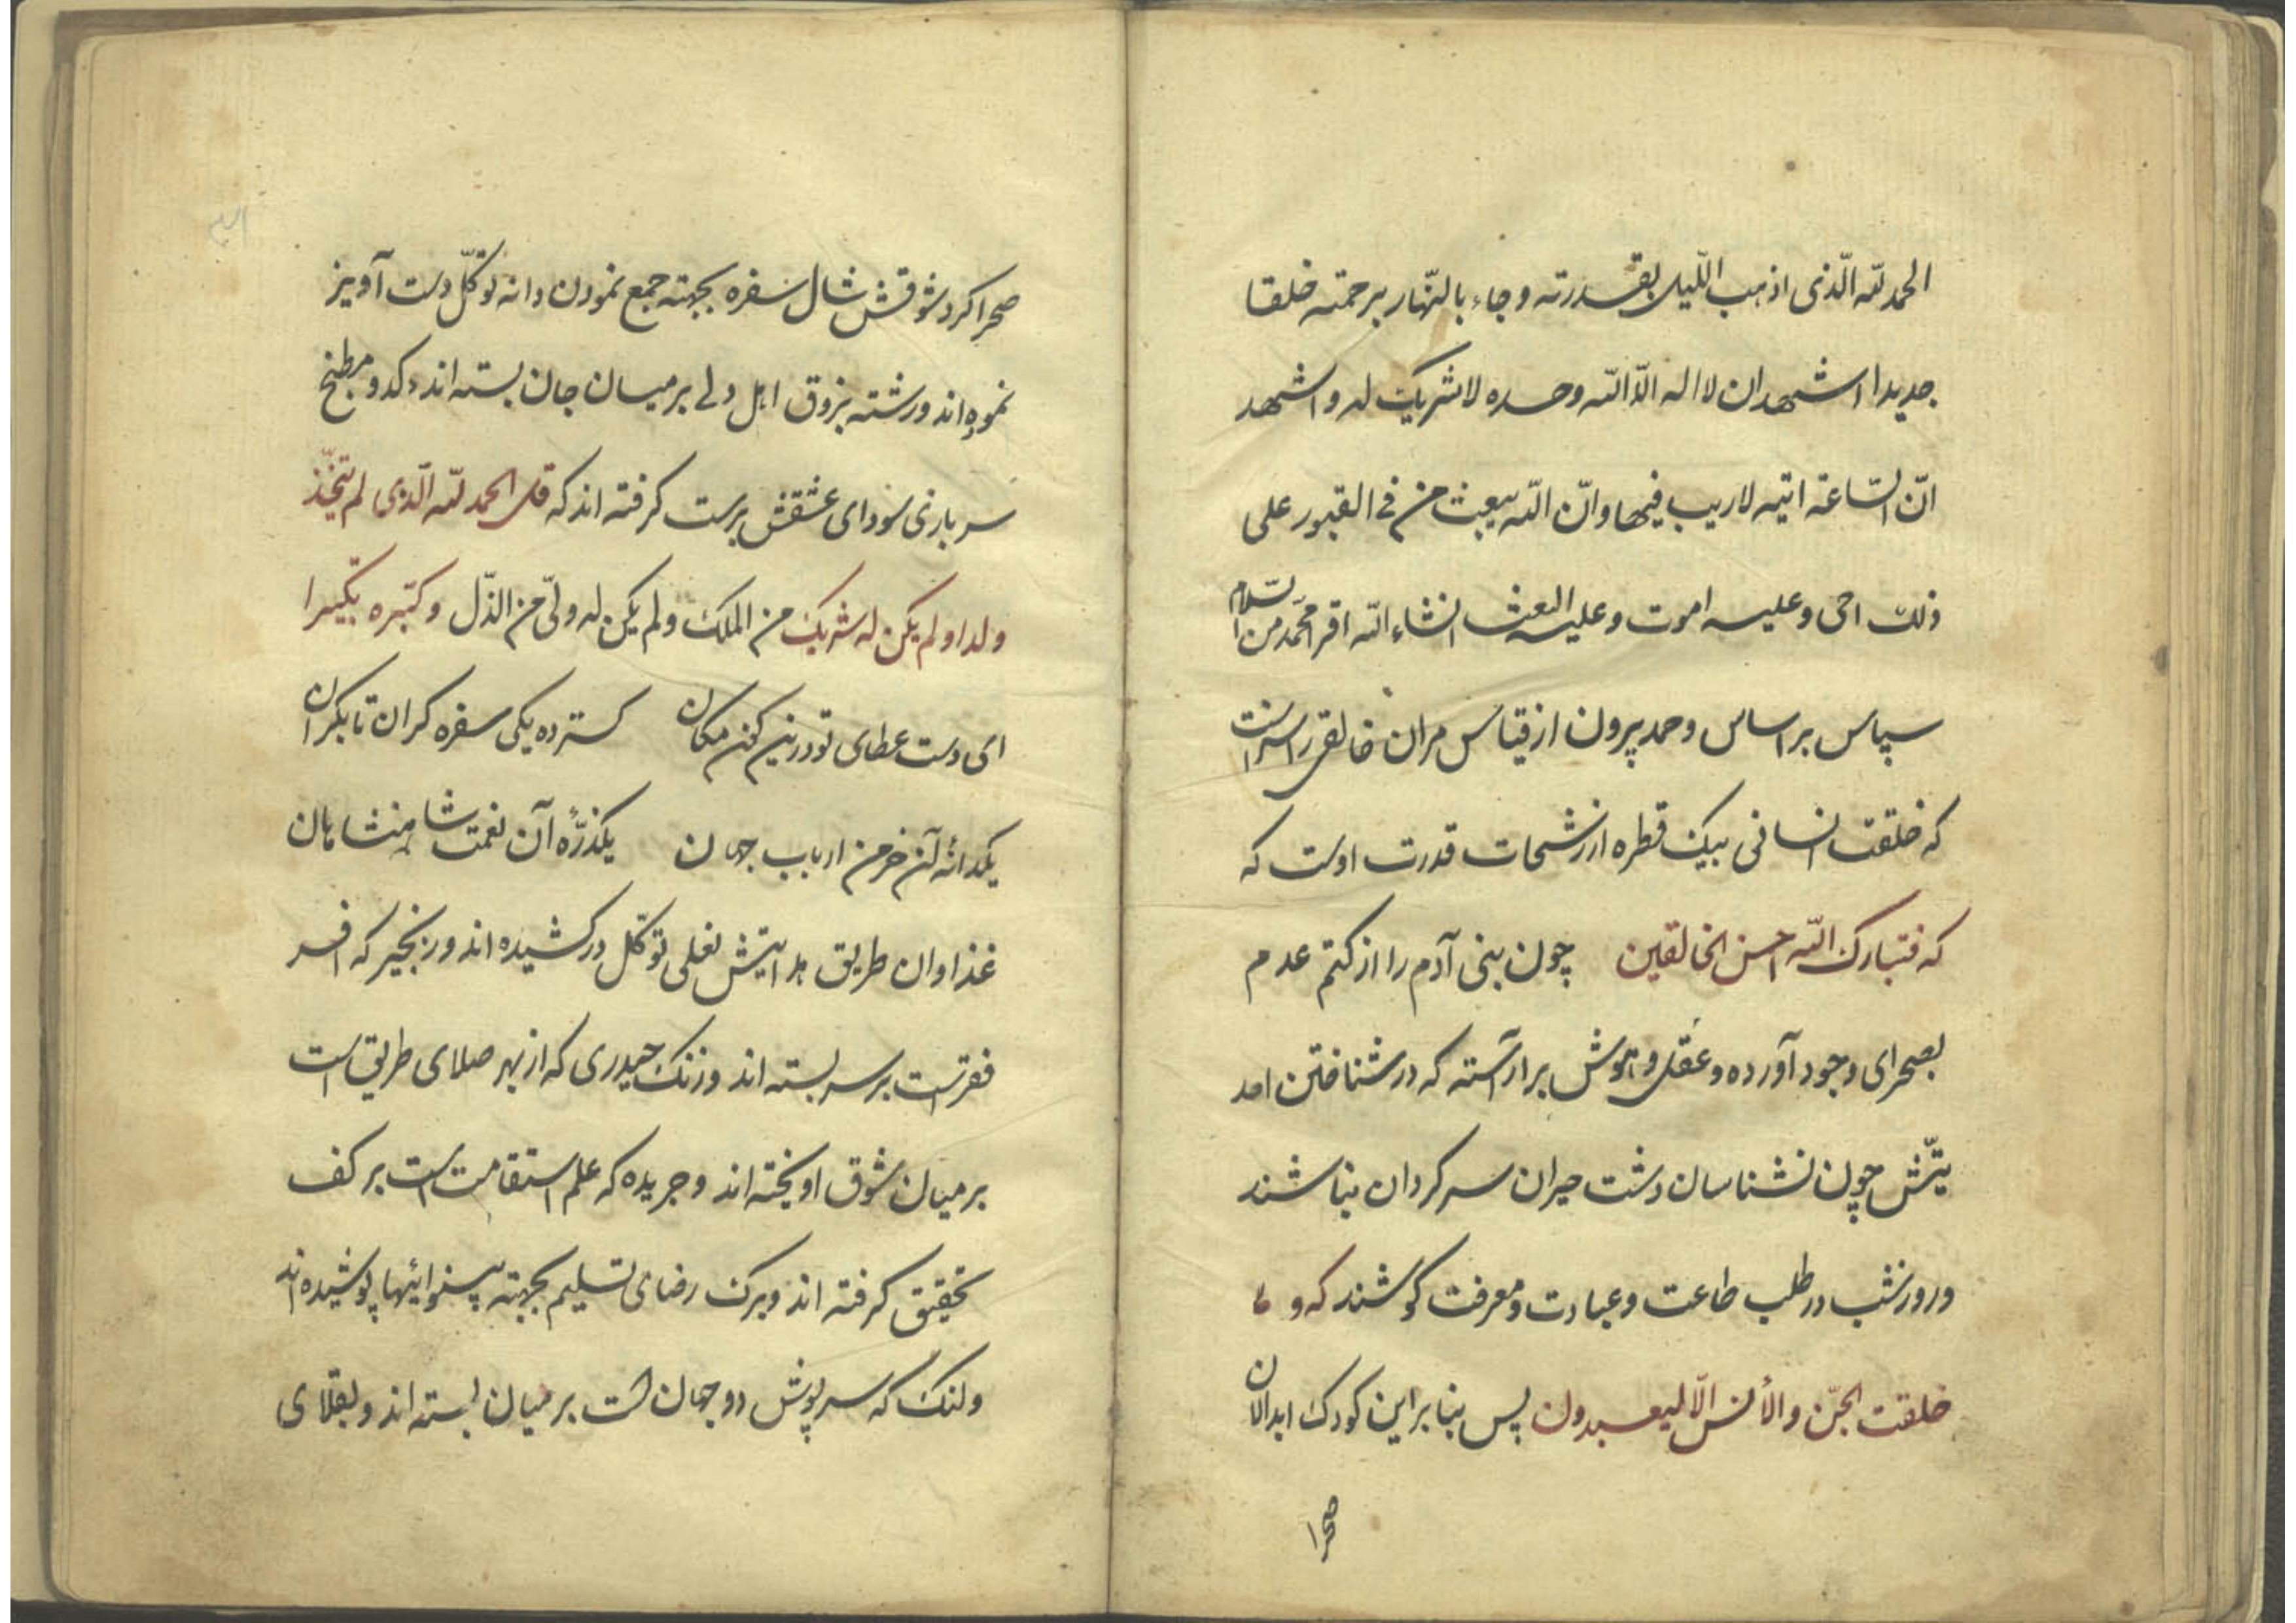 الحمد لله الّذی اذهب اللّیل بقدرته و جاء بالنّهار برحمته خلقا
جدیدا اشهد ان لا اله الّا الله وحده لا شریک له و اشهد
انّ السّاعة اتیه لاریب فیها و انّ الله یبعث من فی القبور علی
ذلک احی و علیه اموت و علیه البعث انشاء الله اقر محمّد من السّلام
سپاس بر اساس و حمد پرون از قیاس مران خالقی را سزاست
که خلقت انسانی بیک قطره از رشحات قدرت اوست که
که فتبارک الله احسن الخالقین چون بنی آدم را از کتم عدم
بصحرای وجود آورده و عقل و هوش بر آراسته که در شناختن احد
یتّش چون نشناسان دشت حیران سرکردان نباشند
و روز شب در طلب طاعت و عبادت و معرفت کوشند که و ما
خلقت الجنّ و الأنس الّا لیعبدون پس بنا بر این کودک ابدالان
صحرا
صحرا کرد شوقش شال سفره بجهته جمع نمودن دانه توکّل دست آویز
نموده اند و رشته بزوق اهل دلی بر میان جان بسته اند کدو مطبخ
سربازی سودای عشقش بر ست کرفته اند که قل الحمد لله الّذی لم یتّخذ
ولدا و لم یکن له شریک من الملک و لم یکن له ولیّ من الذّل و کبّره تکبیرا
ای دست عطای تو درین کن مکان کسترده یکی سفره کران تا بکران
یکدانهٔ آن خرمن ارباب جهان یکذرّهٔ آن نعمت شاهنشاهان
غذاوان طریق هدایتش نعلی توکّل در کشیده اند و زنجیر که افسر
فقرتست بر سر بسته اند و زنک حیدری که از بهر صلای طریق است
بر میان شوق اویخته اند و جریده که علم استقامت است بر کف
تحقیق کرفته اند و برک رضای تسلیم بجهته بینوائیها پوشیده اند
و لنک که سرپوش دو جهان است بر میان بسته اند و بقلای